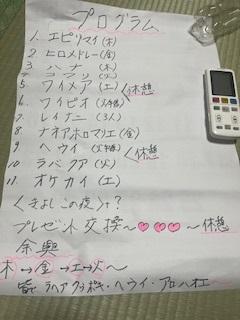 プログラム
1. エピリマイ(木)
2. ヒロメドレー(金)
3 ハナ (木)
4 コマツ (火)
5 ワイメア (エ) 休憩
6 ワイピオ
7. レイナニ (3人)
8 ナオアホロマリエ(金)
9 ヘウイ 休憩
10 ラバクア (火)
11. オケカイ (エ)
<きよしこの夜>+?
プレゼント交換〜♡♡♡〜休憩
余興
木→金→エ→火〜
ラハアクラポキ・ヘウイ・アロハオエ